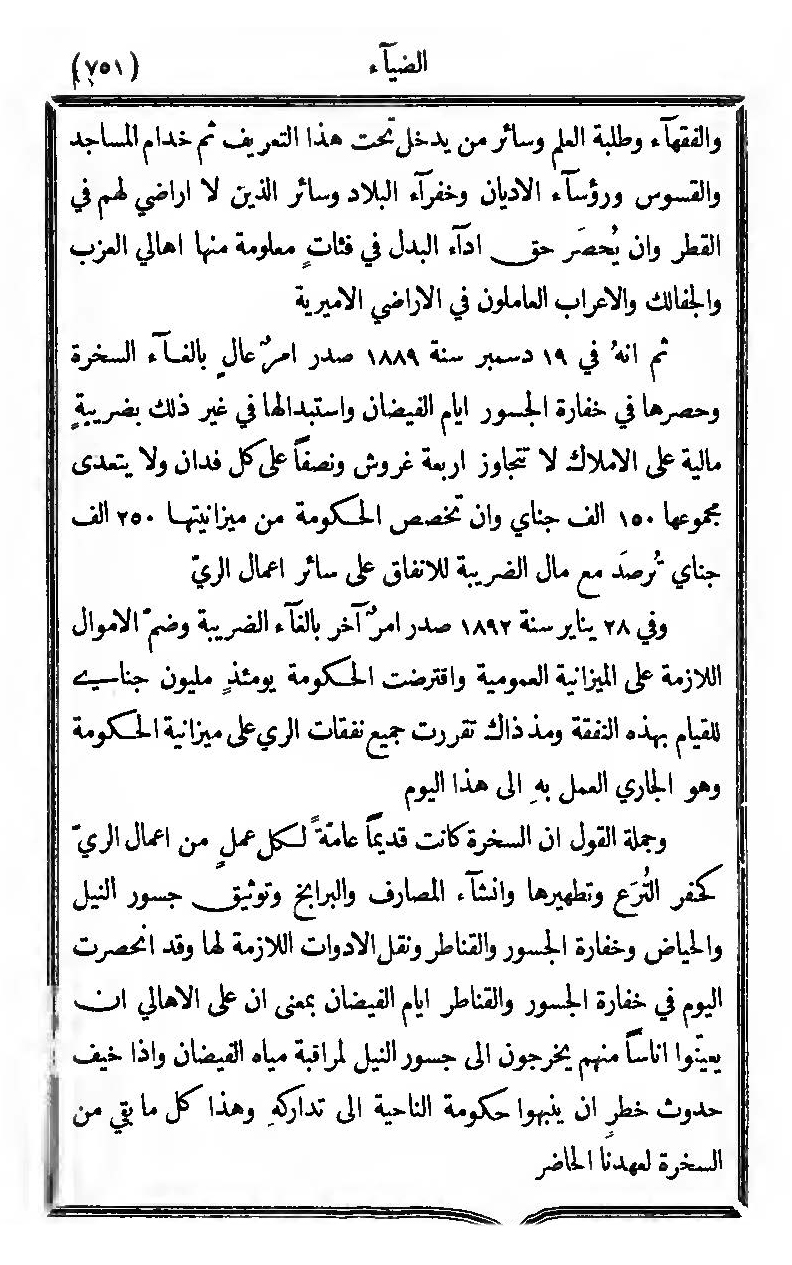 الضيآء
(٧٥١)
والفقهآء وطلبة العلم وسائر من يدخل تحت هذا التعريف ثم خدام المساجد
والقسوس ورؤسآء الاديان وخفرآء البلاد وسائر الذين لا اراضي لهم في
القطر وان يُحصَر حق ادآء البدل في فئاتٍ معلومة منها اهالي العزب
والجفالك والاعراب العاملون في الاراضي الاميرية
ثم انهُ في ١٩ دسمبر سنة ١٨٨٩ صدر امرٌ عالٍ بالغآء السخرة
وحصرها في خفارة الجسور ايام الفيضان واستبدالها في غير ذلك بضريبةٍ
مالية على الاملاك لا تتجاوز اربعة غروش ونصفاً على كل فدان ولا يتعدى
مجموعها ١٥٠ الف جناي وان تخصص الحكومة من ميزانيتها ٢٥٠ الف
جناي تُرصَد مع مال الضريبة للانفاق على سائر اعمال الريّ
وفي ٢٨ يناير سنة ١٨٩٢ صدر امرٌ آخر بالغآء الضريبة وضمّ الاموال
اللازمة على الميزانية العمومية واقترضت الحكومة يومئذٍ مليون جناي
للقيام بهذه النفقة ومذ ذاك تقررت جميع نفقات الري على ميزانية الحكومة
وهو الجاري العمل بهِ الى هذا اليوم
وجملة القول ان السخرة كانت قديماً عامّةً لكل عملٍ من اعمال الريّ
كحفر التُرَع وتطهيرها وانشآء المصارف والبرابخ وتوثيق جسور النيل
والحياض وخفارة الجسور والقناطر ونقل الادوات اللازمة لها وقد انحصرت
اليوم في خفارة الجسور والقناطر ايام الفيضان بمعنى ان على الاهالي ان
يعيّنوا اناساً منهم يخرجون الى جسور النيل لمراقبة مياه الفيضان واذا خيف
حدوث خطرٍ ان ينبهوا حكومة الناحية الى تداركهِ وهذا كل ما بقي من
السخرة لعهدنا الحاضر